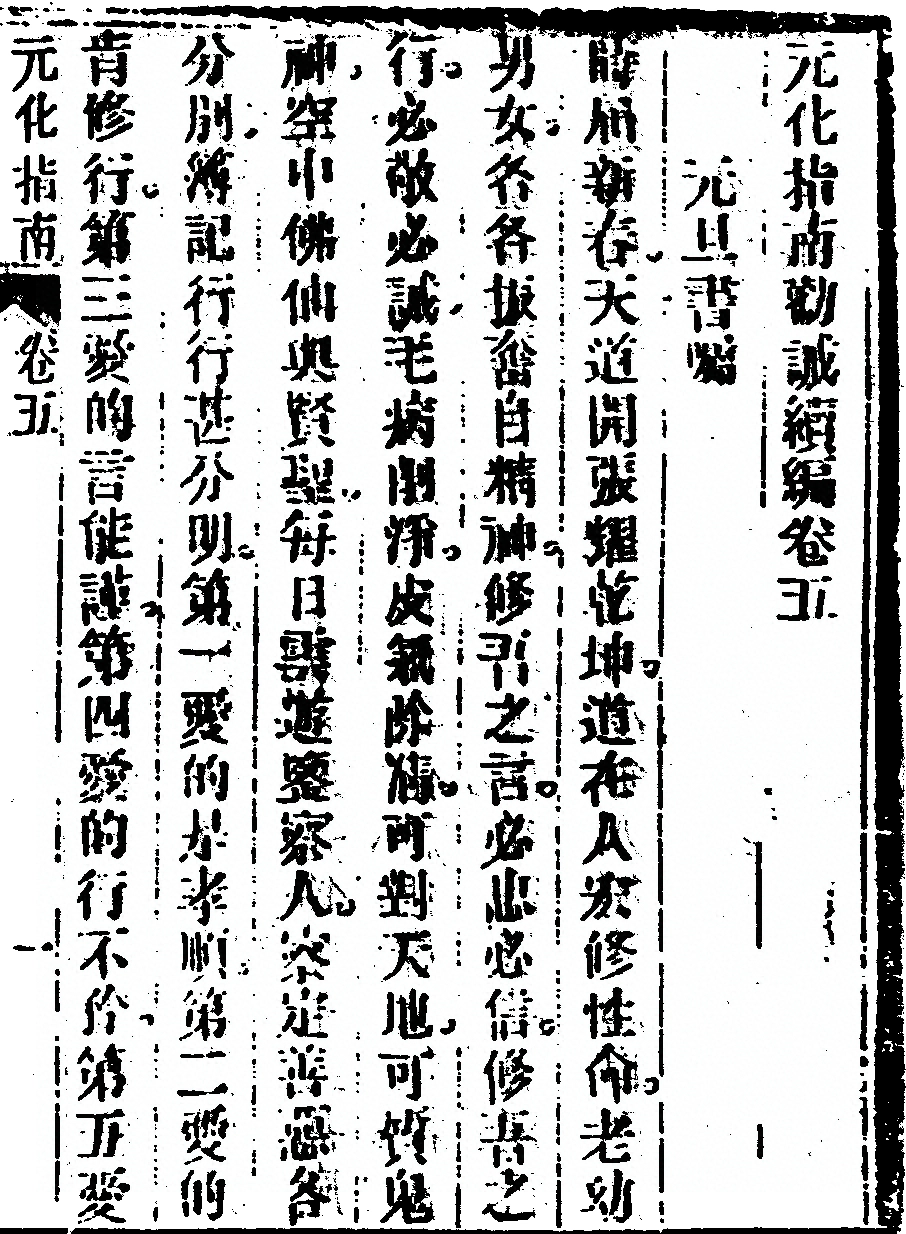 元化指南勸誡續編卷五
元旦書囑
時屆新春天道開張耀乾坤道在人宏修性命老幼
男女各各振奮自精神修習之言必忠必信修善之
行必敬必誠毛病削淨皮氣除焉可對天地可質鬼
神空中佛仙與賢聖每日雲遊鑒察人察定善惡各
分別簿記行行甚分明第一愛的是孝順第二愛的
肯修行第三愛的言能謹第四愛的行不矜第五愛
元化指南 卷五 一